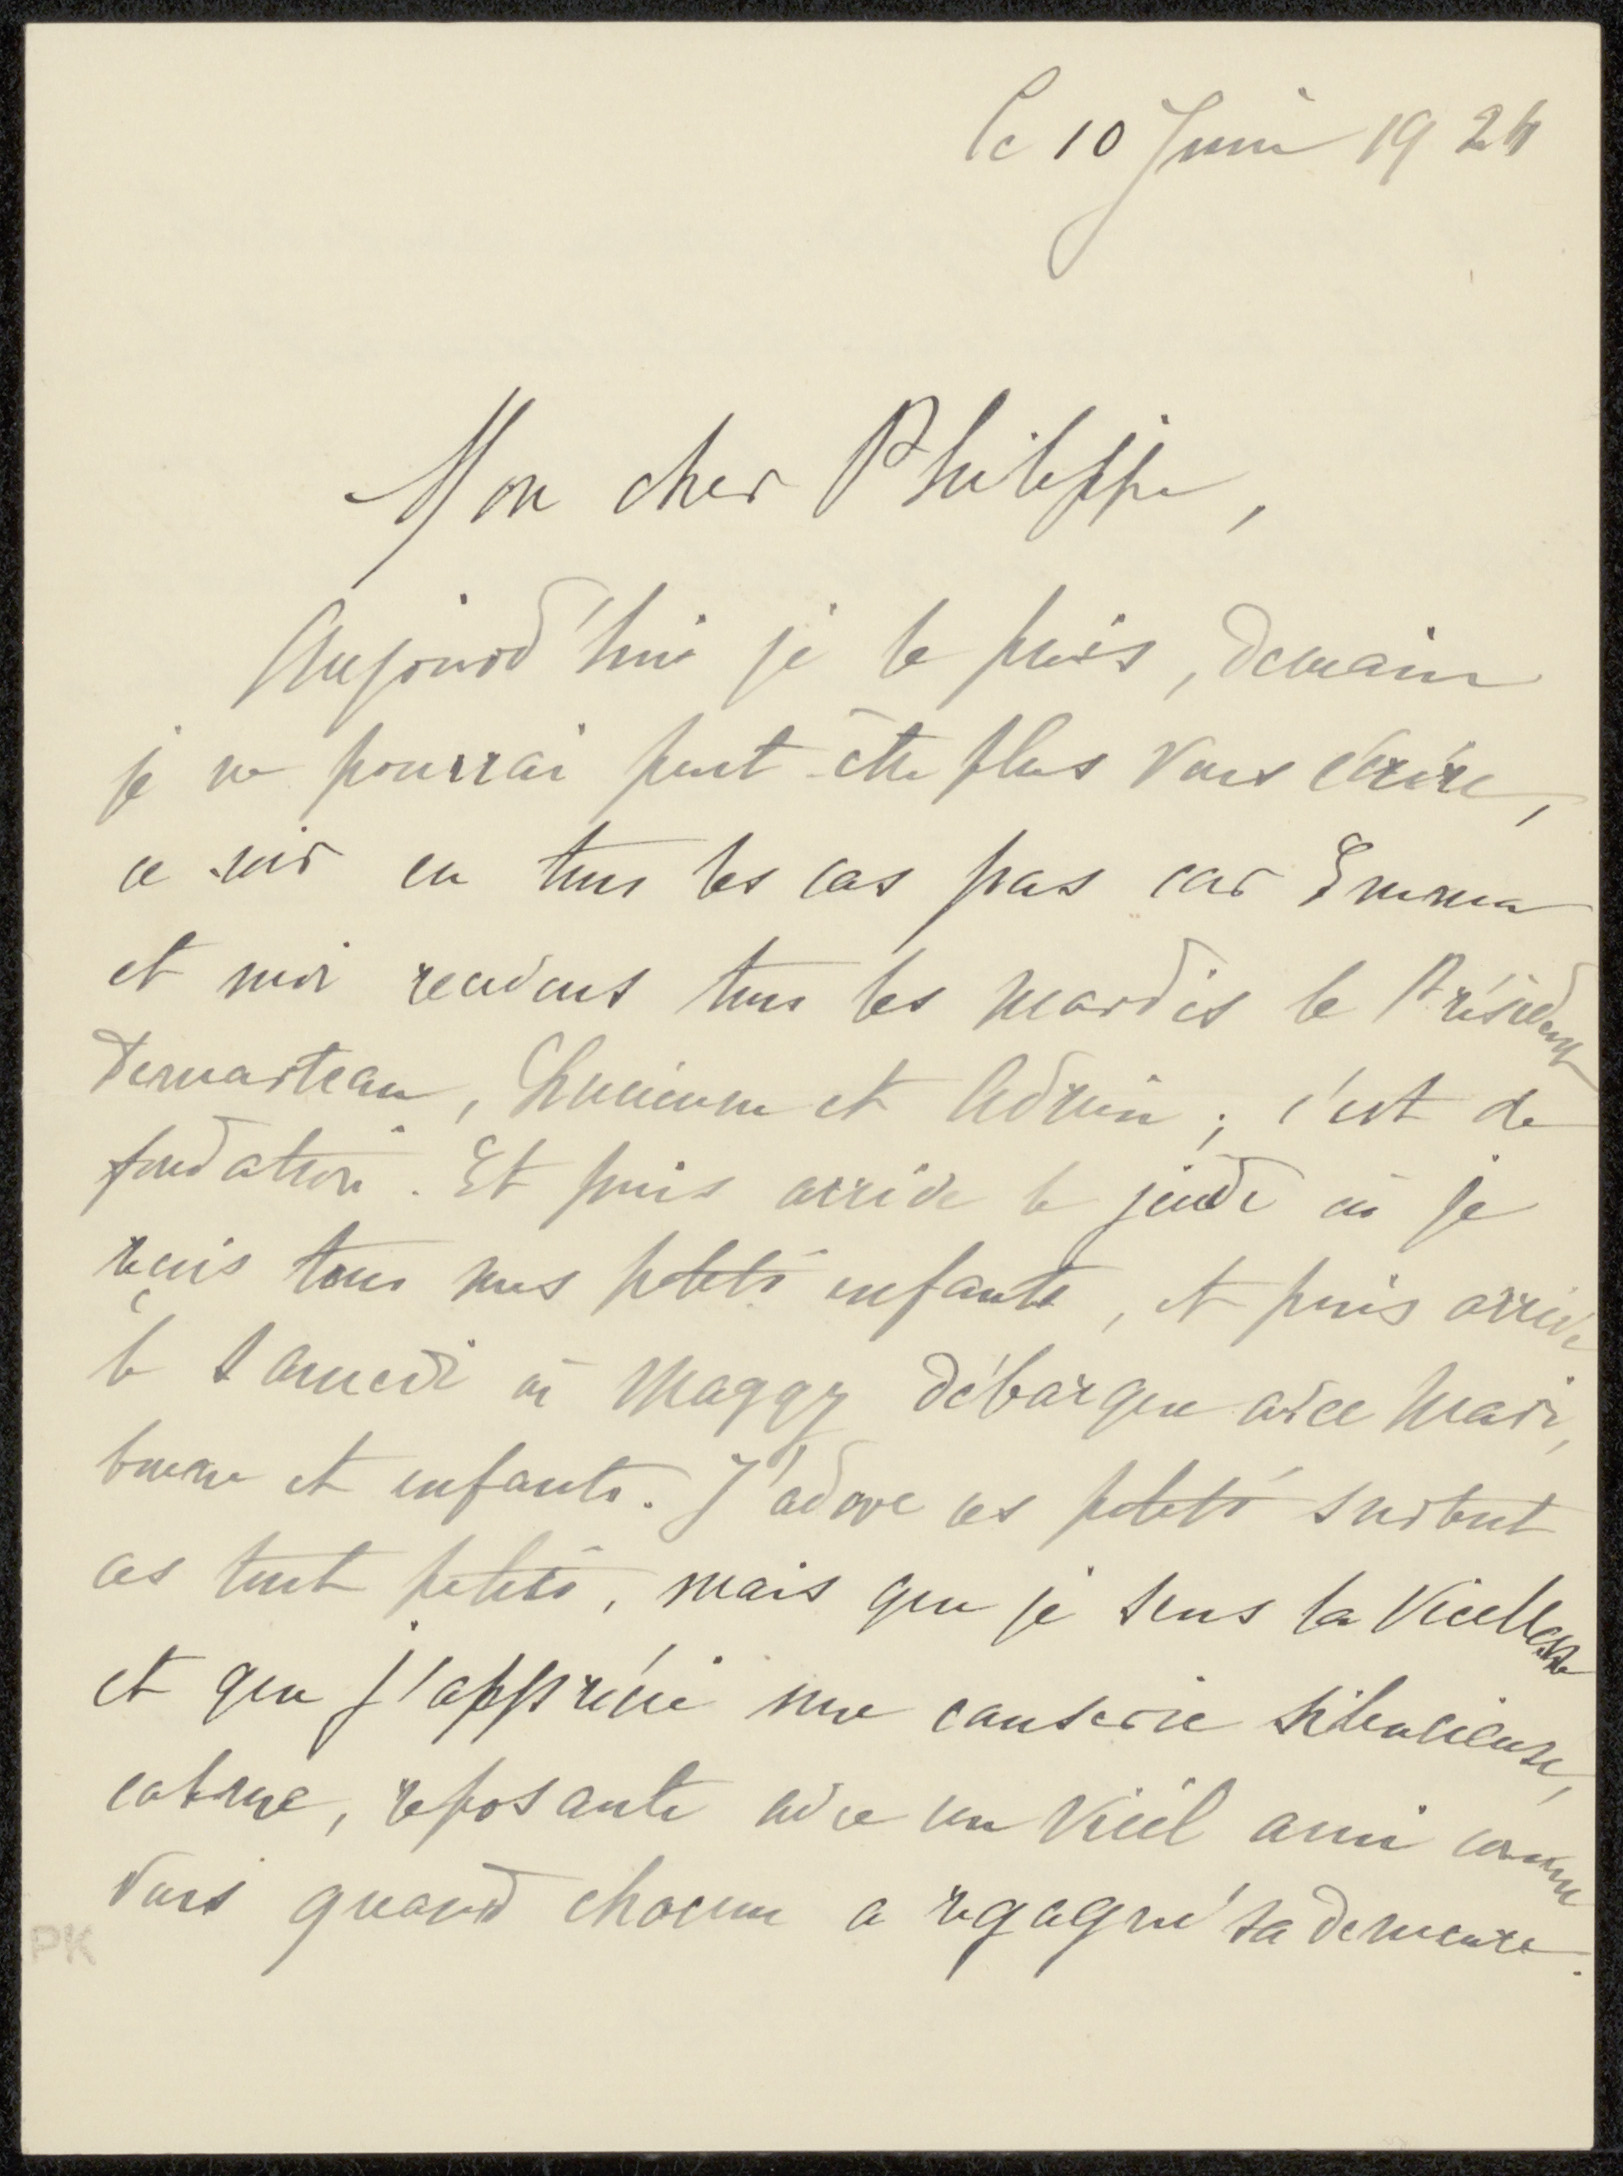 le 10 Juin 1924
Mon cher Philippe,
Aujourd'hui je le puis, demain
je ne pourrai peut-être plus vous écrire,
ce soir en tous les cas pas car Emma
et moi recevons tous les mardis le Président
Demarteau, et Adrien ; c'est de
fondation. Et puis arrive le jeudi où je
reçois tous mes petits enfants, et puis arrive
le samedi où Maggy débarque avec mari,
bonne et enfants. J'adore ces petits surtout
ces tout petits, mais que je sens la vieillesse
et que j'apprécie une causerie silencieuse,
calme, reposante avec un vieil ami comme
vous quand chacun a regagné sa demeure.
PK